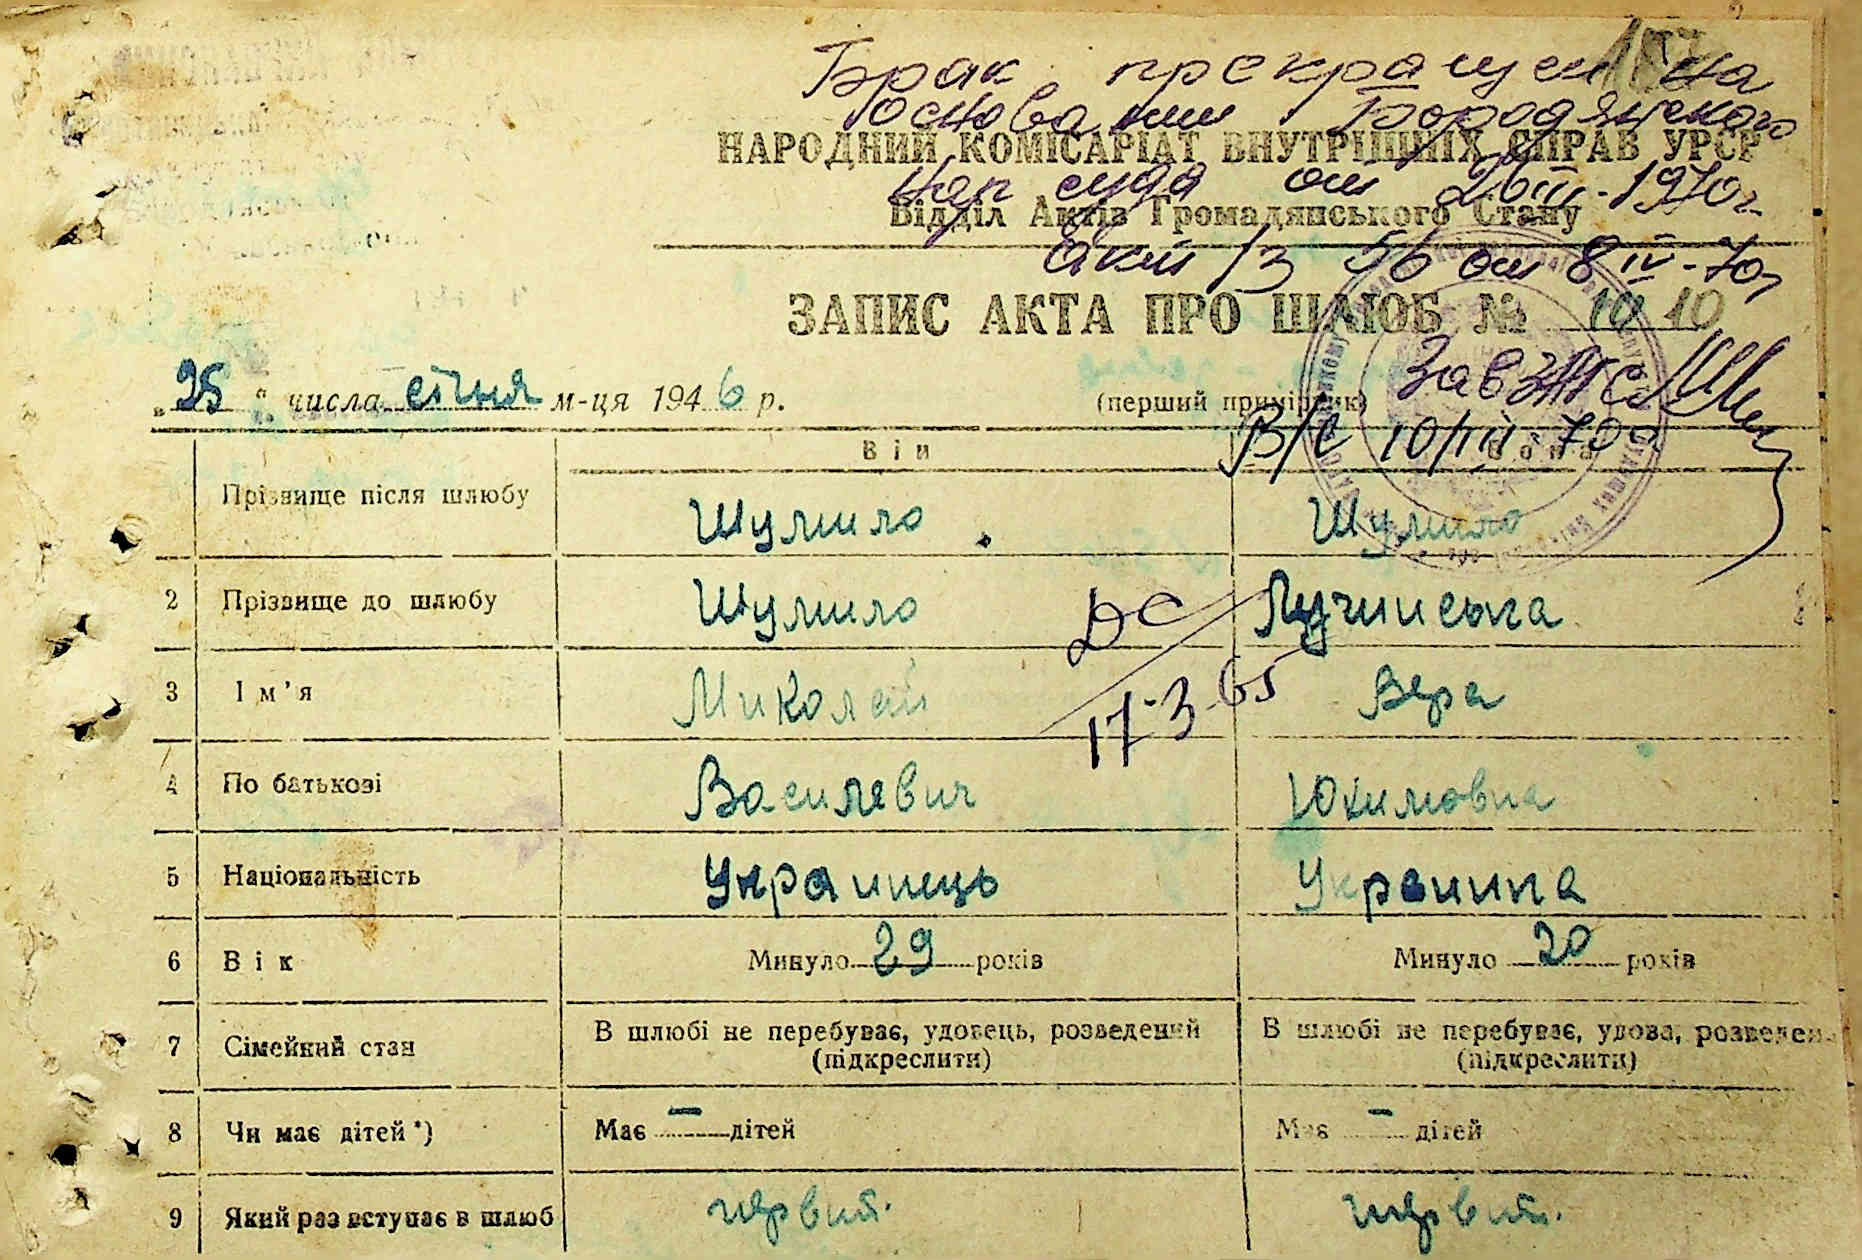 Брак прекращен на
основании Бородянского
НАРОДНИЙ КОМІСАРІАТ ВНУТРІШНІХ СПРАВ УРСР
Нар суда от 26 III-1970г.
Відділ Актів Громадянського Стану
Акт 56 от 8 IV-70г
ЗАПИС АКТА ПРО ШЛЮБ № 10 10
„25“ числа січня м-ця 1946 р. (перший примірник)
Зав ЗАГС
10/III 70
Він Вона
Прізвище після шлюбу Шумило Шумило
2 Прізвище до шлюбу Шумило Лучинська
ДС
17-3-65
3 Ім'я Миколай Вера
4 По батькові Василевич Юхимовна
5 Національність Украинець Украинка
6 Вік Минуло 29 років Минуло 20 років
7 Сімейний стан В шлюбі не перебуває, удовець, розведений В шлюбі не перебуває, удова, розведена
(підкреслити) (підкреслити)
8 Чи має дітей*) Має — дітей Має — дітей
9 Який раз вступає в шлюб первий. первий.